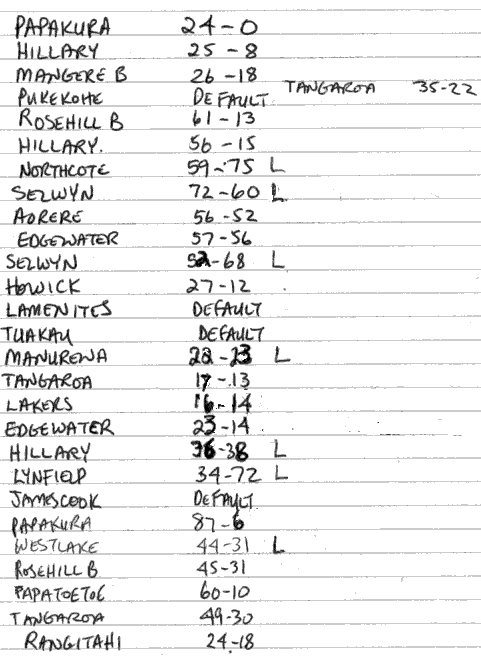 PAPAKURA 24-0
HILLARY 25-8
MANGERE B 26-18
PUKEKOHE DEFAULT TANGAROA 35-22
ROSEHILL B 61-13
HILLARY. 56-15
NORTHCOTE 59-75 L
SELWYN 72-60 L
AORERE 56-52
EDGEWATER 57-56
SELWYN 52-68 L
HOWICK 27-12
LAMENITES DEFAULT
TUAKAU DEFAULT
MANUREWA 22-23 L
TANGAROA 17-13
LAKERS 16-14
EDGEWATER 23-14
HILLARY 36-38 L
LYNFIELD 34-72 L
JAMESCOOK DEFAULT
PAPAKURA 87-6
WESTLAKE 44-31 L
ROSEHILL B 45-31
PAPATOETOE 60-10
TANGAROA 49-30
RANGITAHI 24-18